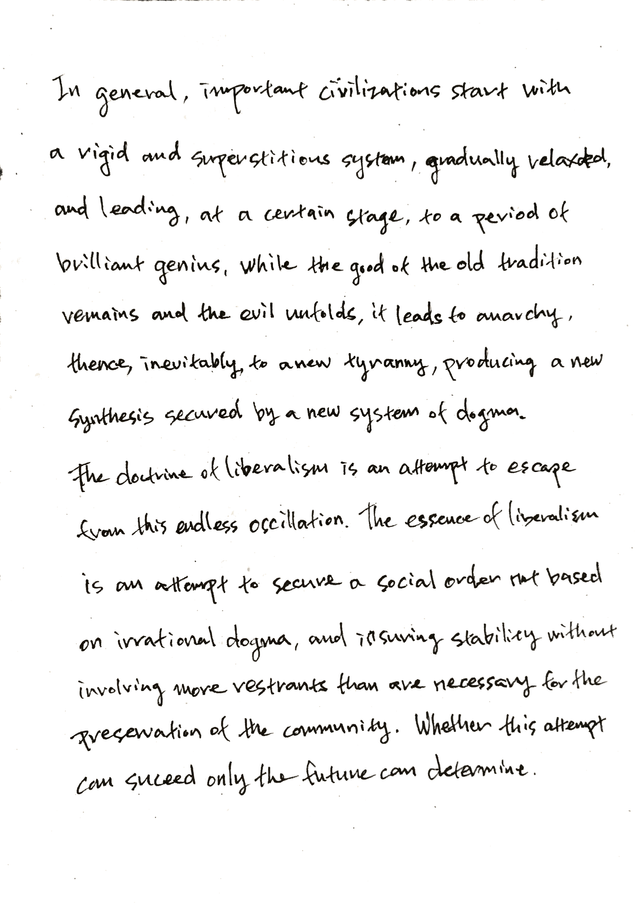 In general, important civilizations start with
a rigid and superstitious system, gradually relaxed,
and leading, at a certain stage, to a period of
brilliant genius, while the good of the old tradition
remains and the evil unfolds, it leads to anarchy,
thence, inevitably, to a new tyranny, producing a new
synthesis secured by a new system of dogma.
The doctrine of liberalism is an attempt to escape
from this endless oscillation. The essence of liberalism
is an attempt to secure a social order not based
on irrational dogma, and insuring stability without
involving more restrants than are necessary for the
preservation of the community. Whether this attempt
can suceed only the future can determine.